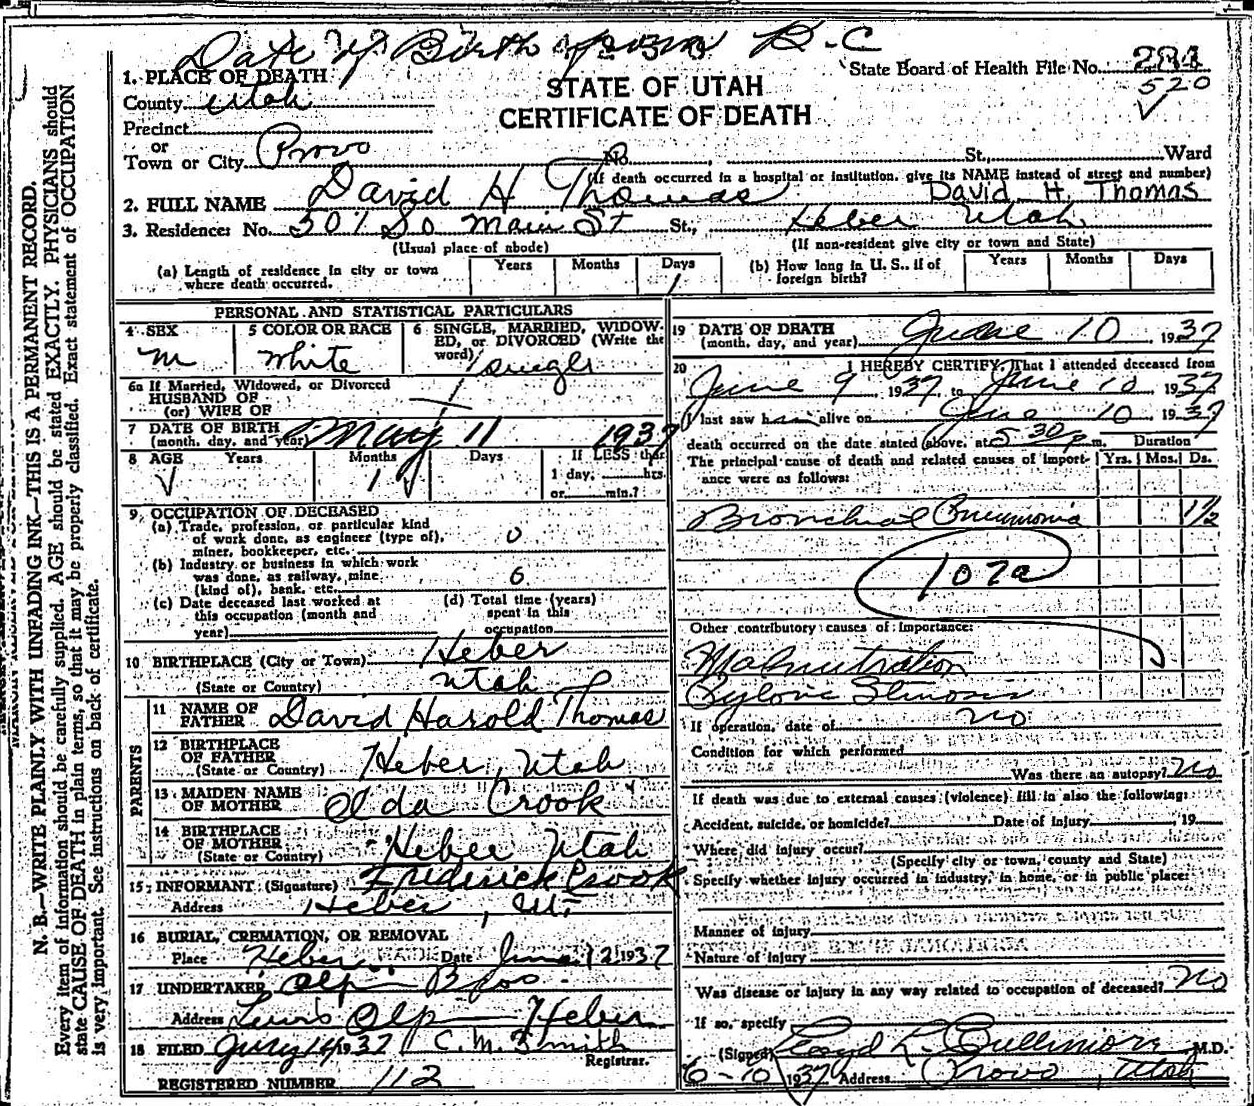 Date of Birth from B-C
State Board of Health File No. 
520
STATE OF UTAH
CERTIFICATE OF DEATH
1. PLACE OF DEATH
County Utah
Precinct
or
Town or City Provo No. St., Ward
(If death occurred in a hospital or institution, give its NAME instead of street and number)
2. FULL NAME David H Thomas David H. Thomas
3. Residence: No. 501 So Main St St., Heber Utah
(Usual place of abode) (If non-resident give city or town and State)
(a) Length of residence in city or town where death occurred. Years Months Days 1
(b) How long in U. S., if of foreign birth? Years Months Days
PERSONAL AND STATISTICAL PARTICULARS
4 SEX m
5 COLOR OR RACE White
6 SINGLE, MARRIED, WIDOWED, or DIVORCED (Write the word) single
6a If Married, Widowed, or Divorced
HUSBAND OF
(or) WIFE OF
7 DATE OF BIRTH
(month, day, and year) May 11 1937
8 AGE Years Months 1 Days If LESS than
1 day, hrs.
or min.?
9 OCCUPATION OF DECEASED
(a) Trade, profession, or particular kind
of work done, as engineer (type of),
miner, bookkeeper, etc. 0
(b) Industry or business in which work
was done, as railway, mine
(kind of), bank, etc. 0
(c) Date deceased last worked at
this occupation (month and
year)
(d) Total time (years)
spent in this
occupation
10 BIRTHPLACE (City or Town) Heber
(State or Country) Utah
PARENTS
11 NAME OF
FATHER David Harold Thomas
12 BIRTHPLACE
OF FATHER
(State or Country) Heber, Utah
13 MAIDEN NAME
OF MOTHER Olda Crook
14 BIRTHPLACE
OF MOTHER
(State or Country) Heber Utah
15 INFORMANT (Signature) Frederick Crook
Address Heber, Ut.
16 BURIAL, CREMATION, OR REMOVAL
Place Heber Date June 12 1937
17 UNDERTAKER Olp Bros.
Address Lewis Olp Heber
18 FILED July 14 1937 C. M. Smith
Registrar.
REGISTERED NUMBER 112
19 DATE OF DEATH
(month, day, and year) June 10, 1937
20 I HEREBY CERTIFY, That I attended deceased from
June 9 1937, to June 10, 1937
I last saw him alive on June 10, 1937
death occurred on the date stated above, at 5 30 p m. Duration
The principal cause of death and related causes of importance were as follows: Yrs. Mos. Ds.
Bronchial Pneumonia 1 1/2
107a
Other contributory causes of importance:
Malnutrition
Pyloric Stenosis
If operation, date of no
Condition for which performed
Was there an autopsy? No
If death was due to external causes (violence) fill in also the following:
Accident, suicide, or homicide? Date of injury , 19
Where did injury occur?
(Specify city or town, county and State)
Specify whether injury occurred in industry, in home, or in public place:
Manner of injury
Nature of injury
Was disease or injury in any way related to occupation of deceased? No
If so, specify
(Signed) Lloyd L. Cullimore M.D.
6-10 1937 Address Provo, Utah
N. B.—WRITE PLAINLY WITH UNFADING INK—THIS IS A PERMANENT RECORD.
Every item of information should be carefully supplied. AGE should be stated EXACTLY. PHYSICIANS should
state CAUSE OF DEATH in plain terms, so that it may be properly classified. Exact statement of OCCUPATION
is very important. See instructions on back of certificate.